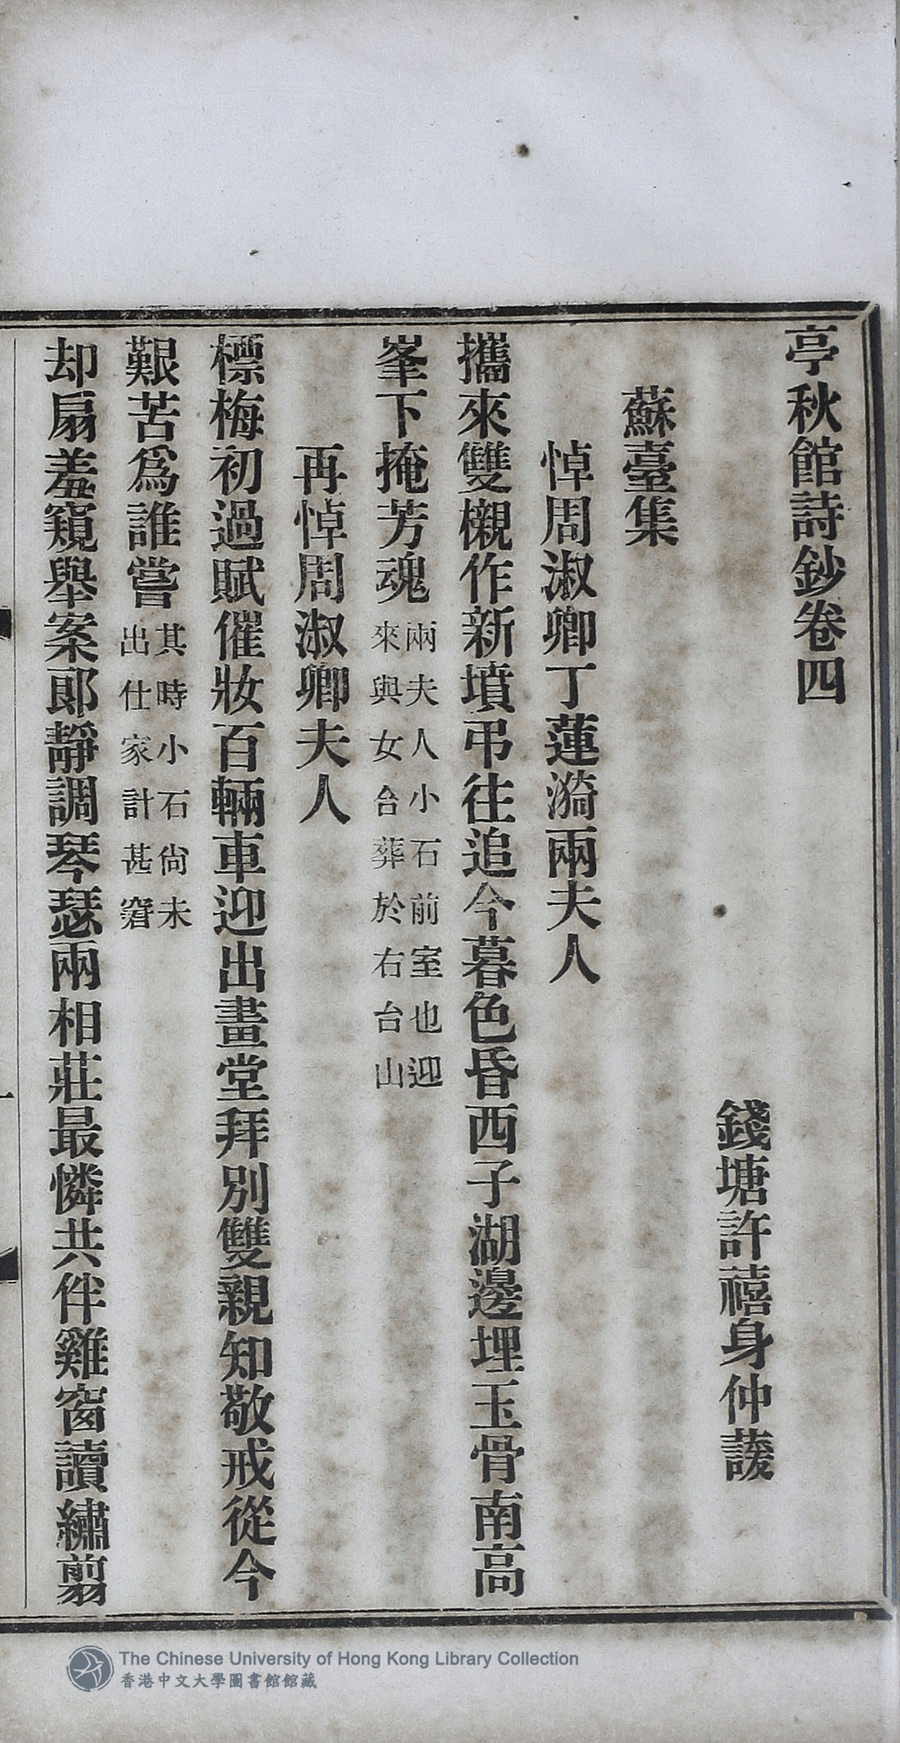 亭秋館詩鈔卷四
錢塘許禧身仲萲
蘇臺集
悼周淑卿丁蓮漪兩夫人
攜來雙櫬作新墳弔往追今暮色昏西子湖邊埋玉骨南高
峯下掩芳魂兩夫人小石前室也迎來與女合葬於右台山
再悼周淑卿夫人
標梅初過賦催妝百輛車迎出畫堂拜別雙親知敬戒從今
艱苦爲誰嘗其時小石尙未出仕家計甚窘
却扇羞窺舉案郞靜調琴瑟兩相莊最憐共伴雞窗讀繡翦
The Chinese University of Hong Kong Library Collection
香港中文大學圖書館館藏